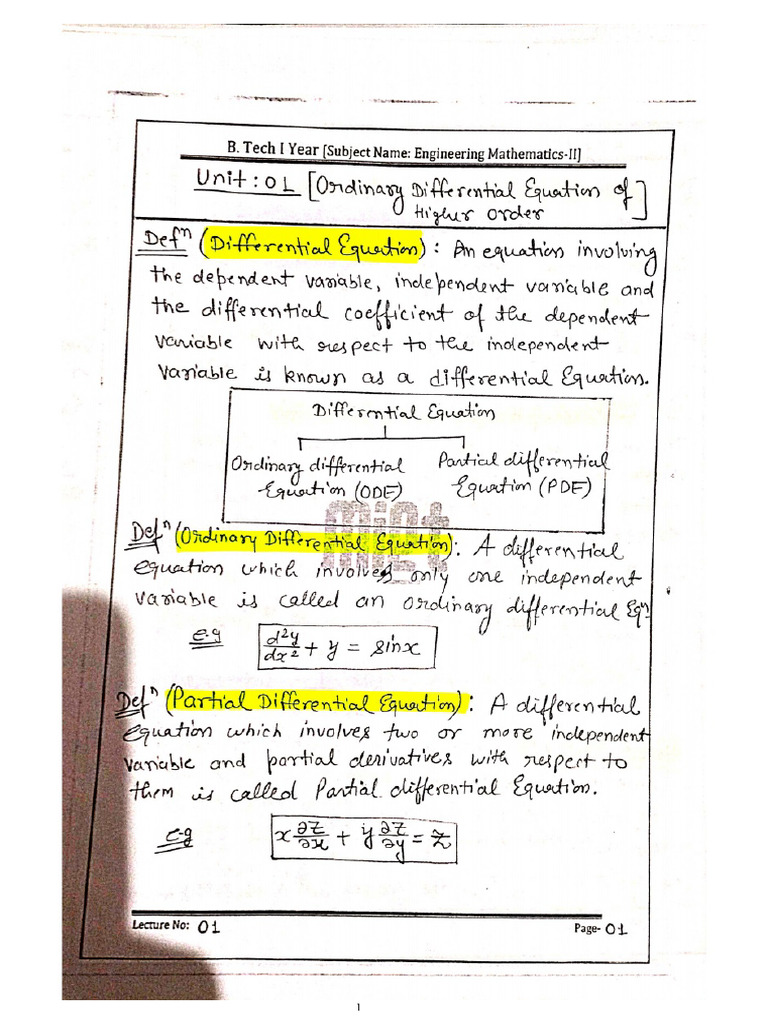 B. Tech I Year [Subject Name: Engineering Mathematics-II]
Unit: 01 [Ordinary Differential Equation of Higher Order]
Defⁿ (Differential Equation): An equation involving
the dependent variable, independent variable and
the differential coefficient of the dependent
variable with respect to the independent
variable is known as a differential Equation.
Differential Equation
Ordinary differential Equation (ODE)
Partial differential Equation (PDE)
miet
Defⁿ (Ordinary Differential Equation): A differential
equation which involves only one independent
variable is called an ordinary differential Eqⁿ.
e.g d²y/dx² + y = sinx
Defⁿ (Partial Differential Equation): A differential
Equation which involves two or more independent
variable and partial derivatives with respect to
them is called Partial differential Equation.
e.g x ∂z/∂x + y ∂z/∂y = z
Lecture No: 01 Page- 01
1